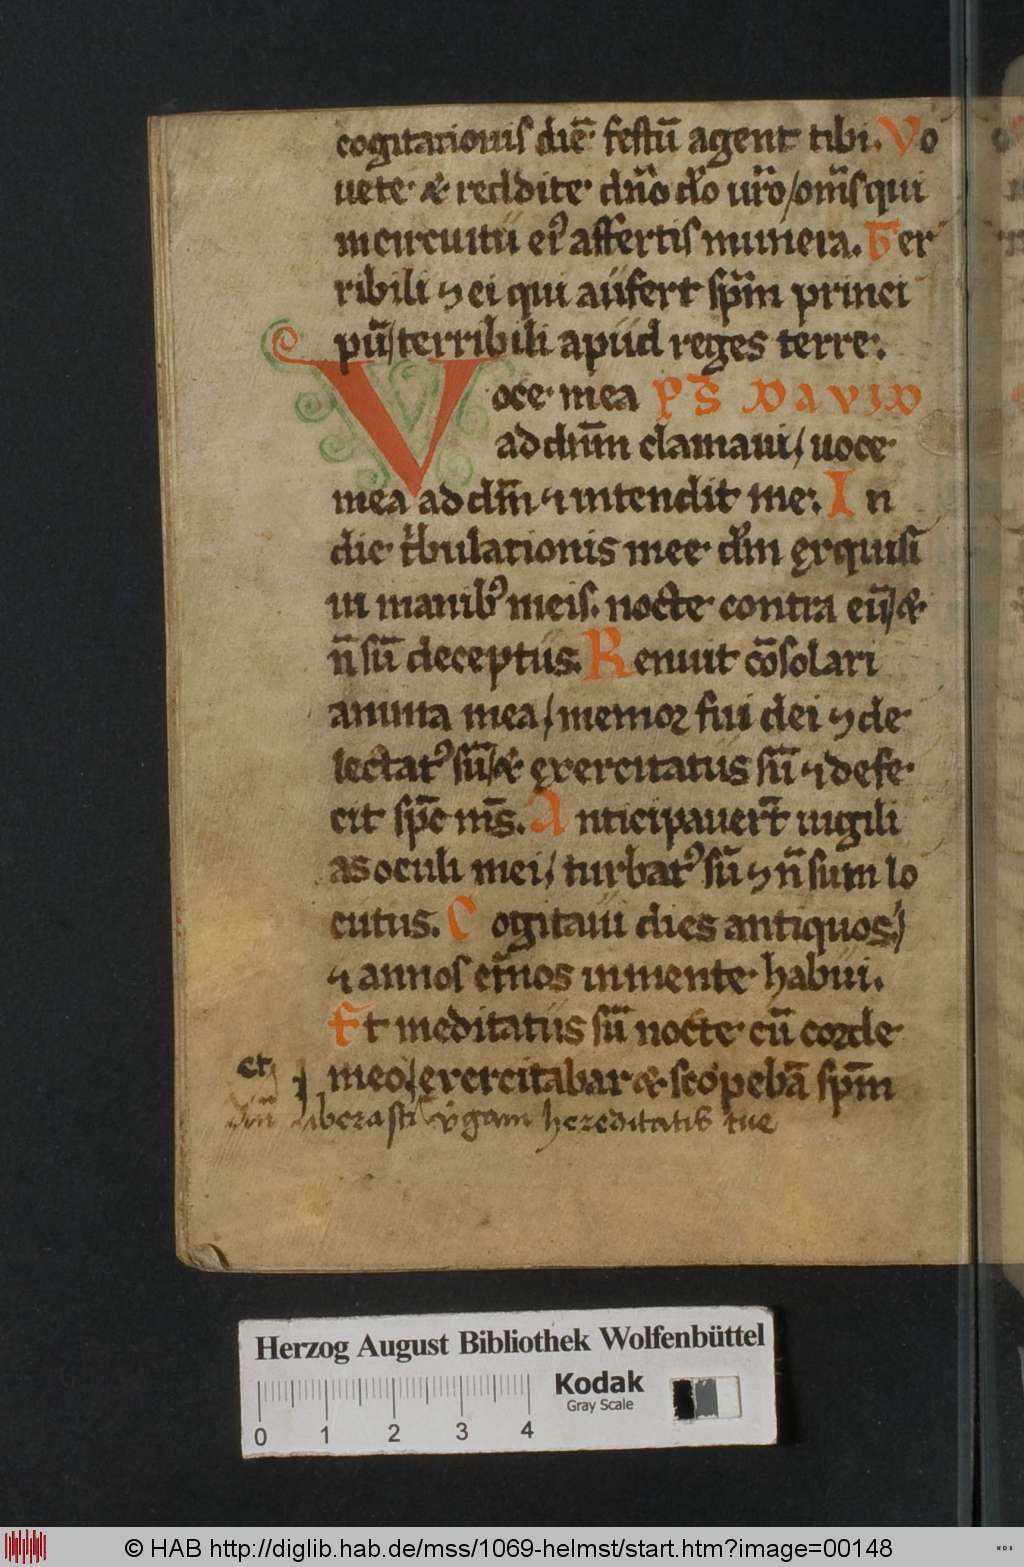 cogitationis diē festū agent tibi. Vo
uete & reddite dño dō ur̄o/ om̄s qui
in circuitu ei⁹ affertis munera. Ter
ribili ⁊ ei qui aufert sp̄m princi
pū/ terribili apud reges terre.
Voce mea PS̄ DAVID
ad dn̄m clamaui/ uoce
mea ad dm̄ ⁊ intendit me. In
die t'bulationis mee dm̄ exquisi
ui manib⁹ meis. nocte contra eū/ &
n̄ sū deceptus. Renuit cōsolari
anima mea/ memor fui dei ⁊ de
lectat⁹ sū/ & exercitatus sū ⁊ defe
cit sp̄c m̄s. Anticipauert̄ uigili
as oculi mei/ turbat⁹ sū ⁊ n̄ sum lo
cutus. Cogitaui dies antiquos/
⁊ annos et̄nos in mente habui.
Et meditatus sū nocte cū corde
meo/ exercitabar & scopebā sp̄m
et
liberasti v̓gam hereditatis tue
Herzog August Bibliothek Wolfenbüttel
Kodak
Gray Scale
0 1 2 3 4
© HAB http://diglib.hab.de/mss/1069-helmst/start.htm?image=00148